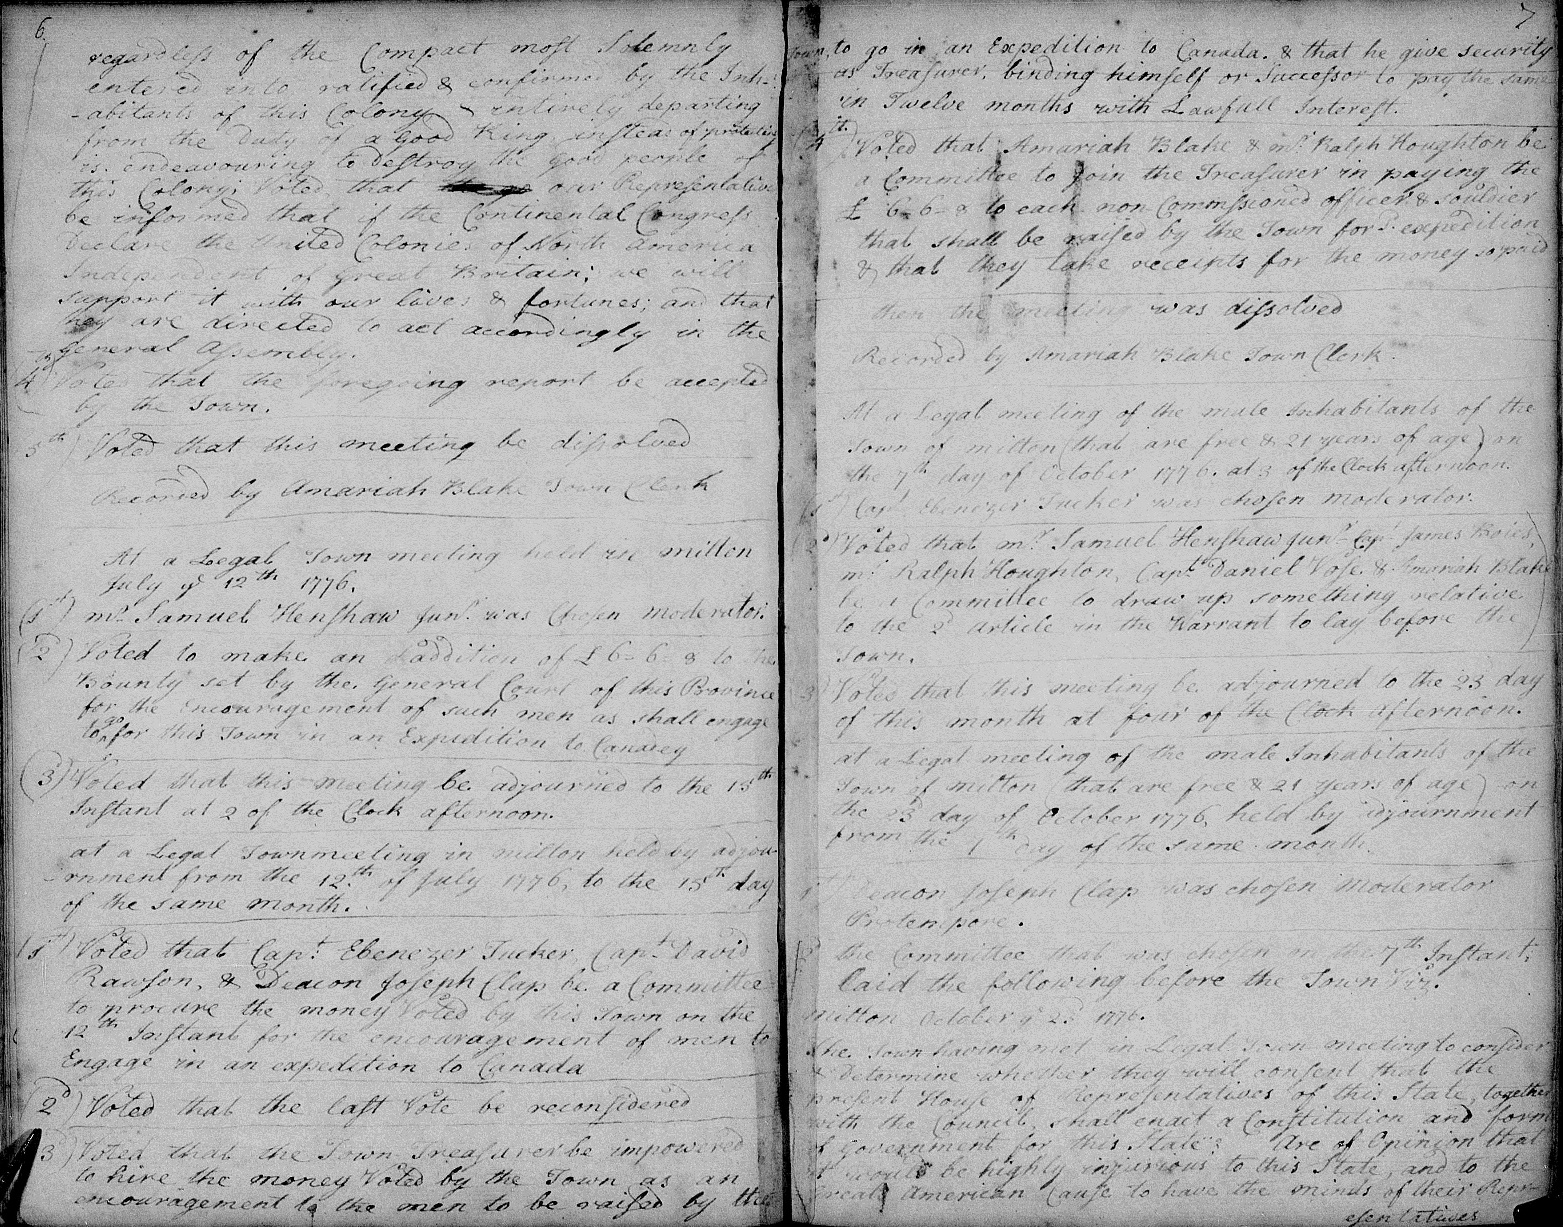 6
regardless of the Compact most Solemnly
entered into ratified & confirmed by the Inh-
-abitants of this Colony & intirely departing
from the Duty of a Good King, instead of protecting
is endeavouring to destroy the Good people of
this Colony; Voted, that our Representative
be informed that if the Continental Congress
Declare the United Colonies of North America
Independent of Great Britain; we will
support it with our lives & fortunes; and that
they are directed to act accordingly in the
General Assembly.
4th) Voted that the foregoing report be accepted
by the Town.
5th) Voted that this meeting be dissolved
Recorded by Amariah Blake Town Clerk
At a Legal Town meeting held in milton
July ye 12th 1776.
(1st) mr. Samuel Henshaw junr. was Chosen moderator.
(2d) Voted to make an addition of £ 6-6-8 to the
Bounty set by the General Court of this Province
for the Encouragement of such men as shall engage
to go for this Town in an Expedition to Canarey
(3d) Voted that this meeting be adjourned to the 15th
Instant at 2 of the Clock afternoon.
at a Legal Townmeeting in milton held by adjou-
-rnment from the 12th of July 1776, to the 15th day
of the same month.
(1st) Voted that Capt. Ebenezer Tucker, Capt. David
Rawson, & Deacon Joseph Clap be a Committee
to procure the money Voted by this Town on the
12th Instant for the encouragement of men to
Engage in an expedition to Canada
(2d) Voted that the last Vote be reconsidered
3d) Voted that the Town Treasurer be impowered
to hire the money Voted by the Town as an
encouragement to the men to be raised by the
7
Town, to go in an Expedition to Canada. & that he give security
as Treasurer, binding himself or Successor to pay the same
in Twelve months with Lawfull Interest.
4th) Voted that Amariah Blake & mr. Ralph Houghton be
a Committee to join the Treasurer in paying the
£ 6-6-8 to each non Commissioned officer & souldier
that shall be raised by the Town for sd. expedition
& that they take receipts for the money so paid
then the meeting was dissolved
Recorded by Amariah Blake Town Clerk.
At a Legal meeting of the male Inhabitants of the
Town of milton (that are free & 21 years of age) on
the 7th day of October 1776. at 3 of the Clock afternoon.
(1st) Capt. Ebenezer Tucker was chosen moderator.
(2d) Voted that mr. Samuel Henshaw junr. Capt James Boies,
mr. Ralph Houghton, Capt. Daniel Vose. & Amariah Blake
be a Committee to draw up something relative
to the 2d article in the Warrant to lay before the
Town.
3d) Voted that this meeting be adjourned to the 23 day
of this month at four of the Clock afternoon.
at a Legal meeting of the male Inhabitants of the
Town of milton (that are free & 21 years of age) on
the 23d day of October 1776, held by adjournment
from the 7th day of the same month.
1st Deacon Joseph Clap was chosen moderator
Protempore.
2d the Committee that was chosen on the 7th Instant,
laid the following before the Town Viz.
milton October ye 23d 1776.
The Town having met in Legal Town meeting to consider
& Determine whether they will consent that the
present House of Representatives of this State, together
with the Council, shall enact a Constitution and form
of Government for this State; Are of Opinion that
it would be highly injurious to this State, and to the
great American Cause to have the minds of their Repr-
esentatives